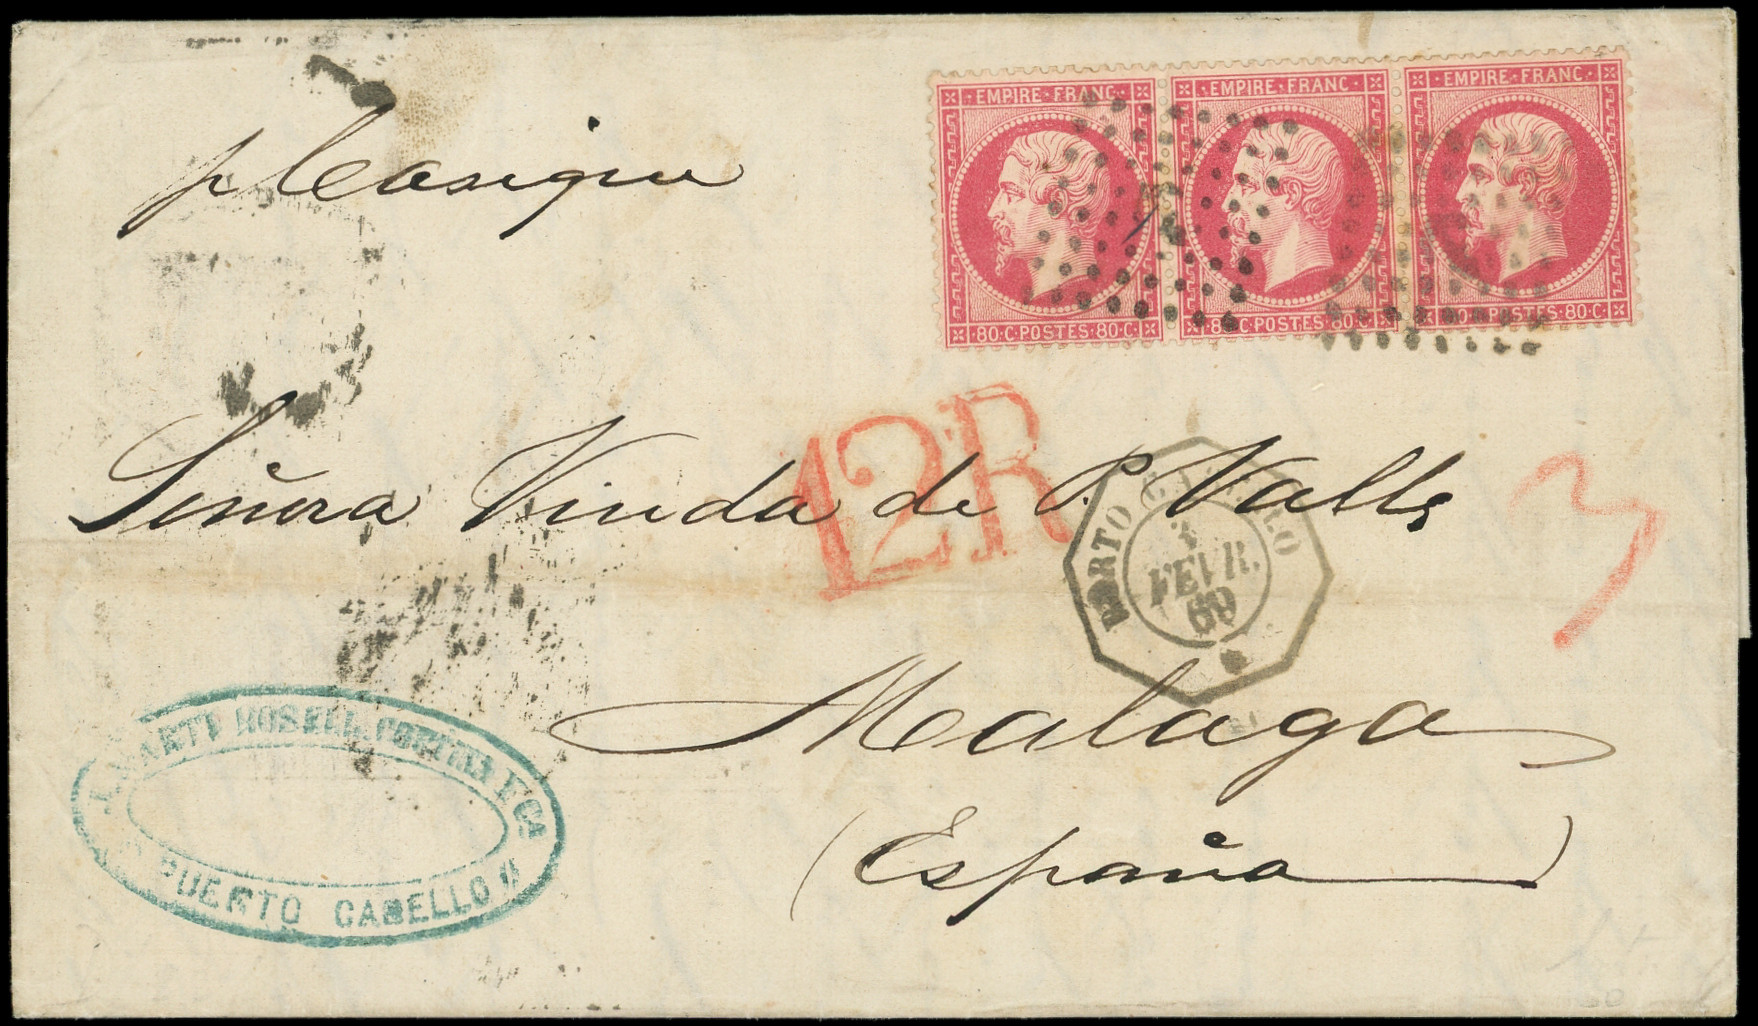 EMPIRE · FRANC
EMPIRE · FRANC
EMPIRE · FRANC
80 · C · POSTES · 80 · C
80 · C · POSTES · 80 · C
80 · C · POSTES · 80 · C
p Casique
12R
Señora Viuda de P. Valls
PORTO CABELLO
3
FEVR.
69
Malaga
(España)
MARTI ROSELL
PUERTO CABELLO